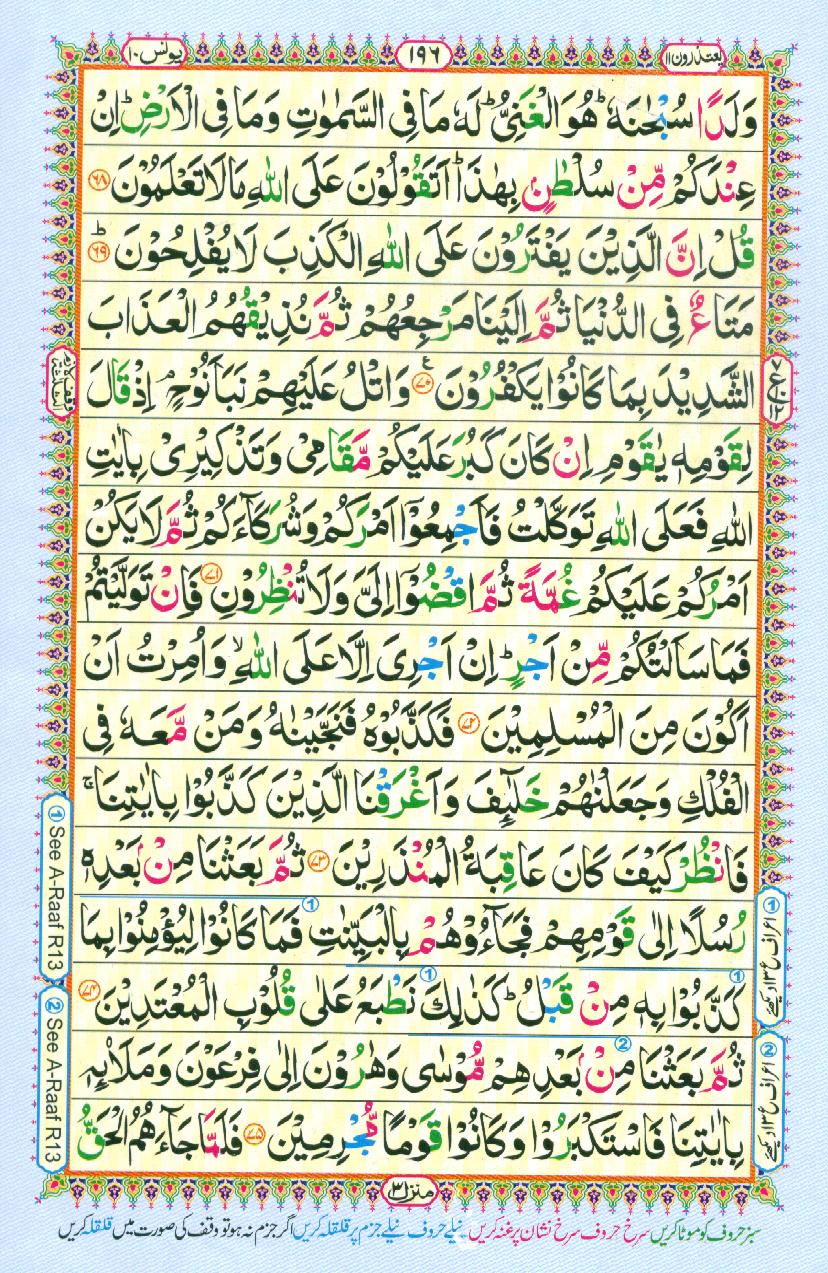 یونس ۱۰
۱۹۶
یعتذرون ۱۱
وَلَدًا سُبْحٰنَهٗ ؕ هُوَ الْغَنِیُّ ؕ لَهٗ مَا فِی السَّمٰوٰتِ وَمَا فِی الْاَرْضِ ؕ اِنْ
عِنْدَكُمْ مِّنْ سُلْطٰنٍۭ بِهٰذَا ؕ اَتَقُوْلُوْنَ عَلَی اللّٰهِ مَا لَا تَعْلَمُوْنَ ﴿۶۸﴾
قُلْ اِنَّ الَّذِیْنَ یَفْتَرُوْنَ عَلَی اللّٰهِ الْكَذِبَ لَا یُفْلِحُوْنَ ؕ ﴿۶۹﴾
مَتَاعٌ فِی الدُّنْیَا ثُمَّ اِلَیْنَا مَرْجِعُهُمْ ثُمَّ نُذِیْقُهُمُ الْعَذَابَ
الشَّدِیْدَ بِمَا كَانُوْا یَكْفُرُوْنَ ﴿۷۰﴾ ع وَاتْلُ عَلَیْهِمْ نَبَاَ نُوْحٍ ۘ اِذْ قَالَ
لِقَوْمِهٖ یٰقَوْمِ اِنْ كَانَ كَبُرَ عَلَیْكُمْ مَّقَامِیْ وَتَذْكِیْرِیْ بِاٰیٰتِ
اللّٰهِ فَعَلَی اللّٰهِ تَوَكَّلْتُ فَاَجْمِعُوْۤا اَمْرَكُمْ وَشُرَكَآءَكُمْ ثُمَّ لَا یَكُنْ
اَمْرُكُمْ عَلَیْكُمْ غُمَّةً ثُمَّ اقْضُوْۤا اِلَیَّ وَلَا تُنْظِرُوْنِ ﴿۷۱﴾ فَاِنْ تَوَلَّیْتُمْ
فَمَا سَاَلْتُكُمْ مِّنْ اَجْرٍ ؕ اِنْ اَجْرِیَ اِلَّا عَلَی اللّٰهِ ۙ وَاُمِرْتُ اَنْ
اَكُوْنَ مِنَ الْمُسْلِمِیْنَ ﴿۷۲﴾ فَكَذَّبُوْهُ فَنَجَّیْنٰهُ وَمَنْ مَّعَهٗ فِی
الْفُلْكِ وَجَعَلْنٰهُمْ خَلٰٓىِٕفَ وَاَغْرَقْنَا الَّذِیْنَ كَذَّبُوْا بِاٰیٰتِنَا ۚ
فَانْظُرْ كَیْفَ كَانَ عَاقِبَةُ الْمُنْذَرِیْنَ ﴿۷۳﴾ ثُمَّ بَعَثْنَا مِنْۢ بَعْدِهٖ
رُسُلًا اِلٰی قَوْمِهِمْ فَجَآءُوْهُمْ بِالْبَیِّنٰتِ فَمَا كَانُوْا لِیُؤْمِنُوْا بِمَا
كَذَّبُوْا بِهٖ مِنْ قَبْلُ ؕ كَذٰلِكَ نَطْبَعُ عَلٰی قُلُوْبِ الْمُعْتَدِیْنَ ﴿۷۴﴾
ثُمَّ بَعَثْنَا مِنْۢ بَعْدِهِمْ مُّوْسٰی وَهٰرُوْنَ اِلٰی فِرْعَوْنَ وَمَلَا۟ىِٕهٖ
بِاٰیٰتِنَا فَاسْتَكْبَرُوْا وَكَانُوْا قَوْمًا مُّجْرِمِیْنَ ﴿۷۵﴾ فَلَمَّا جَآءَهُمُ الْحَقُّ
① See A-Raaf R13
② See A-Raaf R13
منزل ۳
سبز حروف کو موٹا کریں سرخ حروف سرخ نشان پر غنہ کریں نیلے حروف نیلے جزم پر قلقلہ کریں اگر جزم نہ ہو تو وقف کی صورت میں قلقلہ کریں